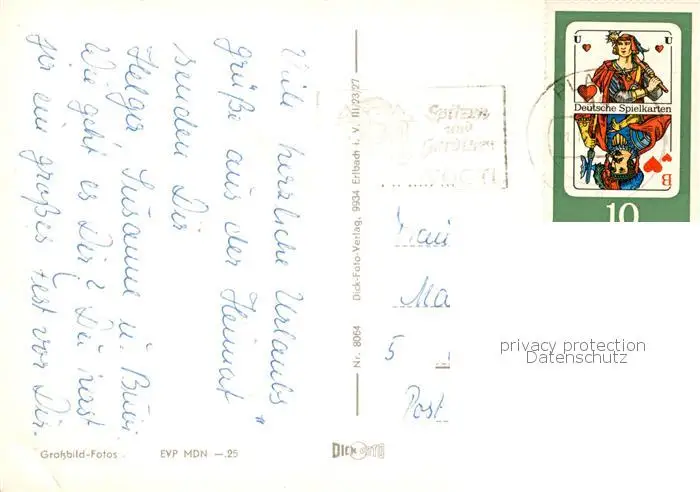 Viele herzliche Urlaubs-
grüße aus der Heimat
senden Dir
Helga Susanne u.
Wie geht es Dir? Du hast
ja ein großes Fest vor Dir.
Großbild-Fotos EVP MDN —.25
Nr. 8064 Dick-Foto-Verlag, 9934 Erlbach i. V. III/23/27
DICK FOTO
Spitzen
und
Gardinen
PLA
U U
Deutsche Spielkarten
B
10
Ma
5
Post
privacy protection
Datenschutz